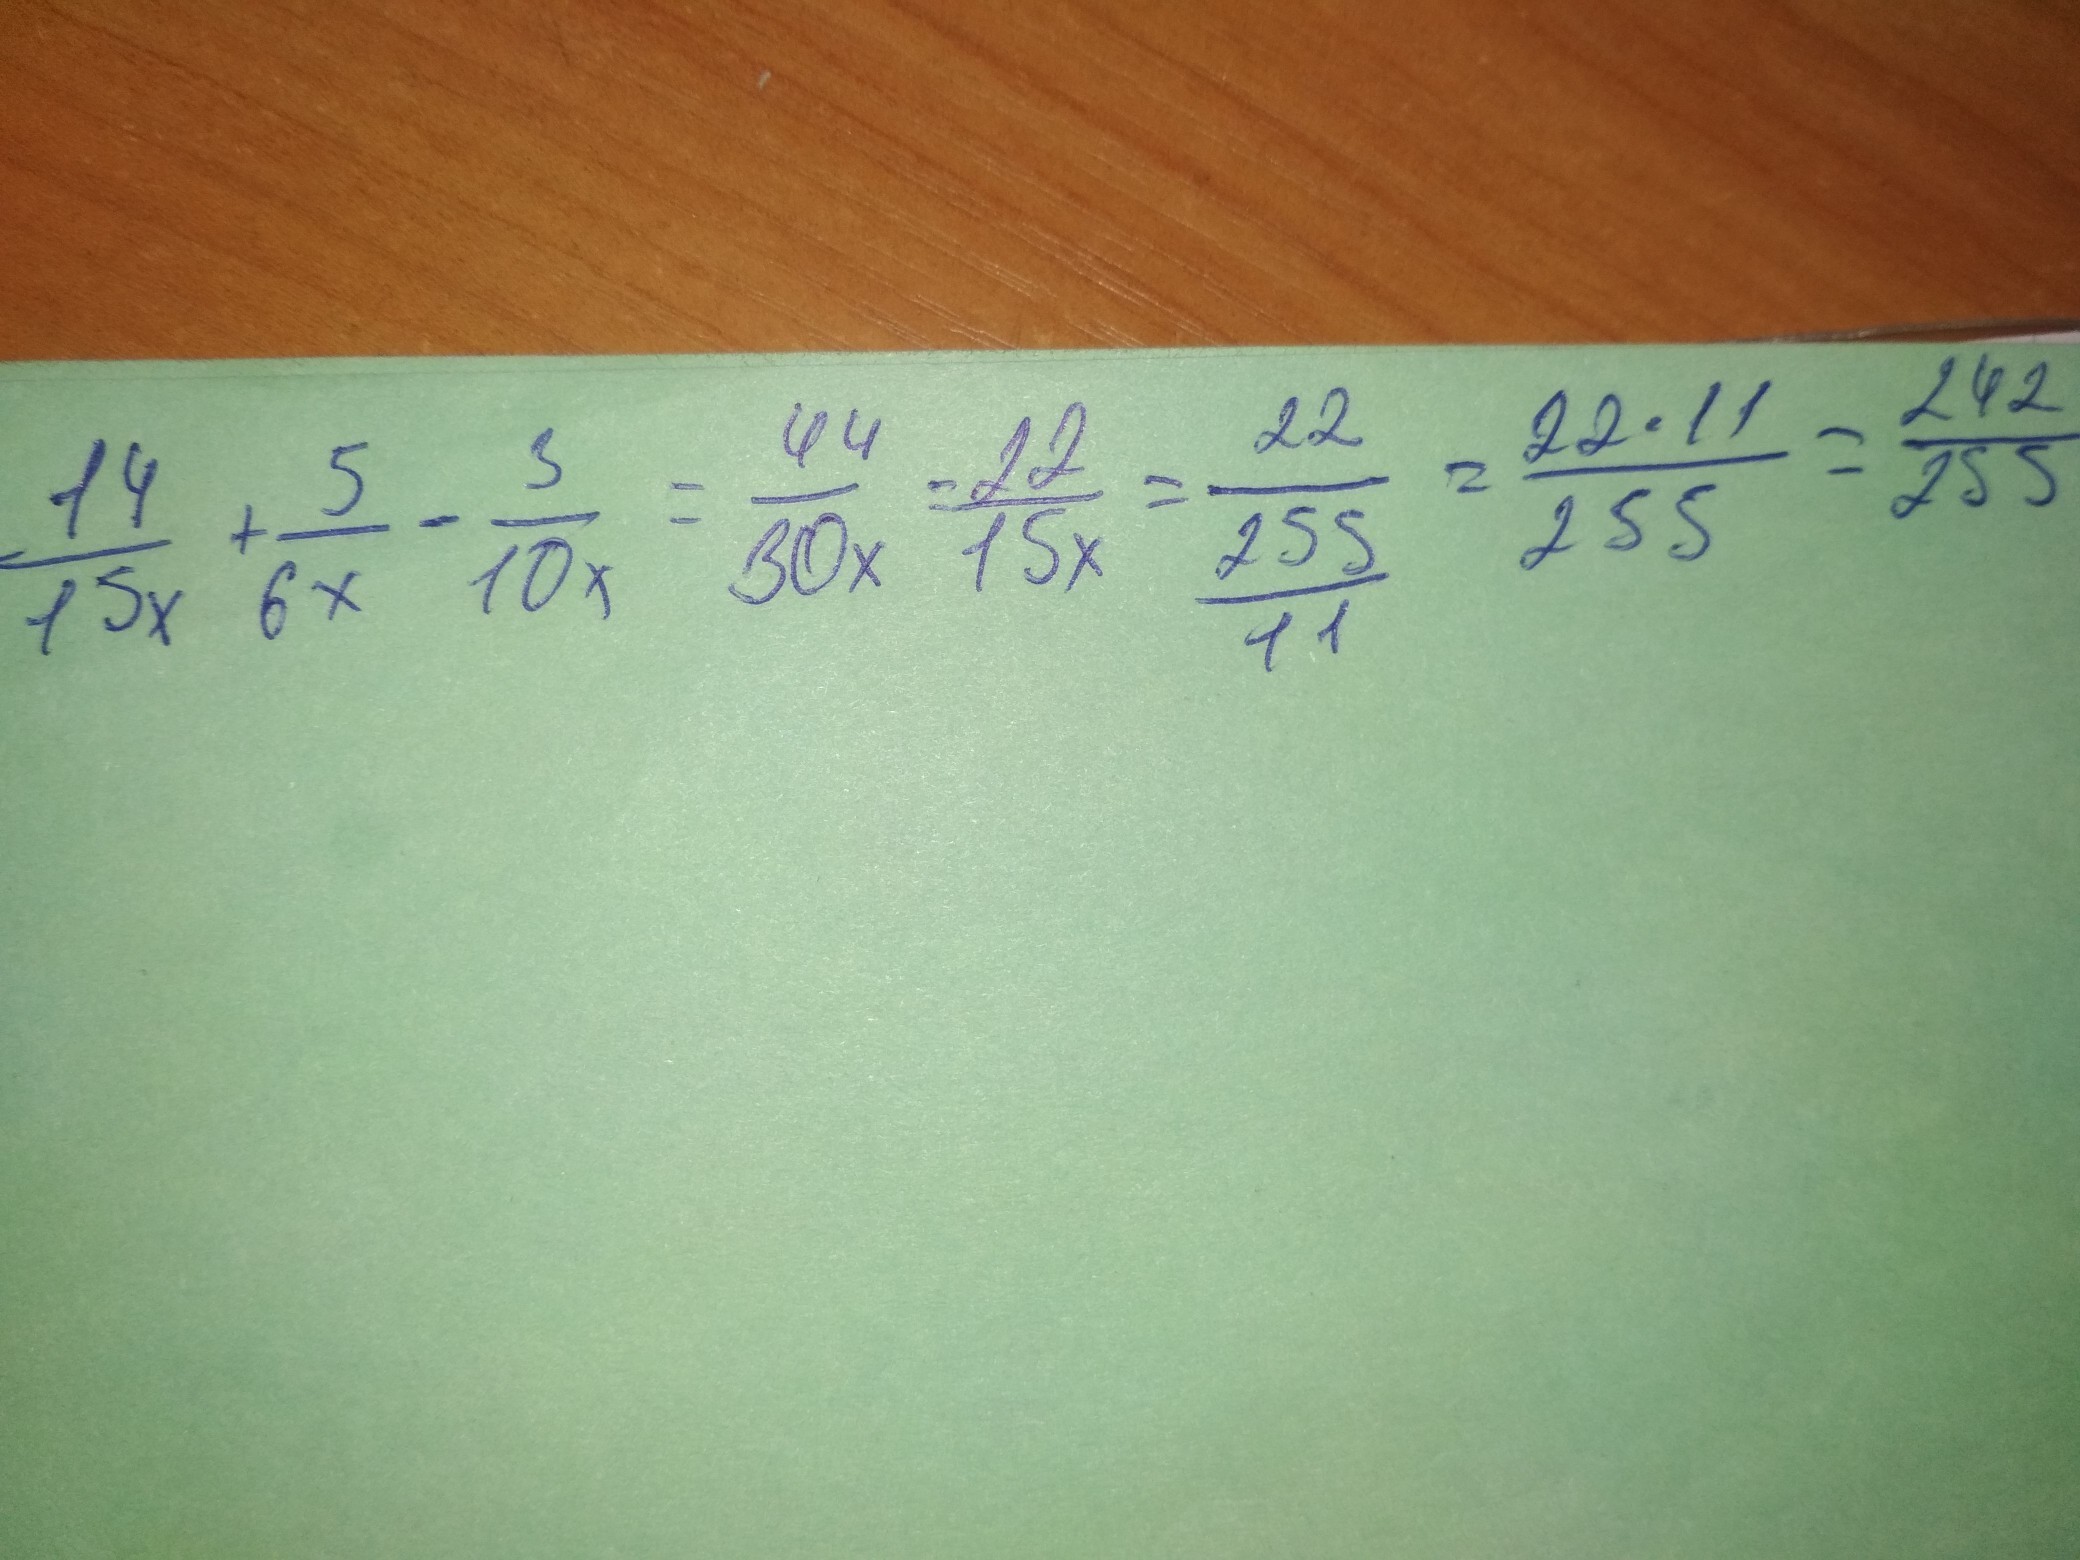 14/15x + 5/6x - 3/10x = 44/30x = 22/15x = 22/(255/11) = 22·11/255 = 242/255